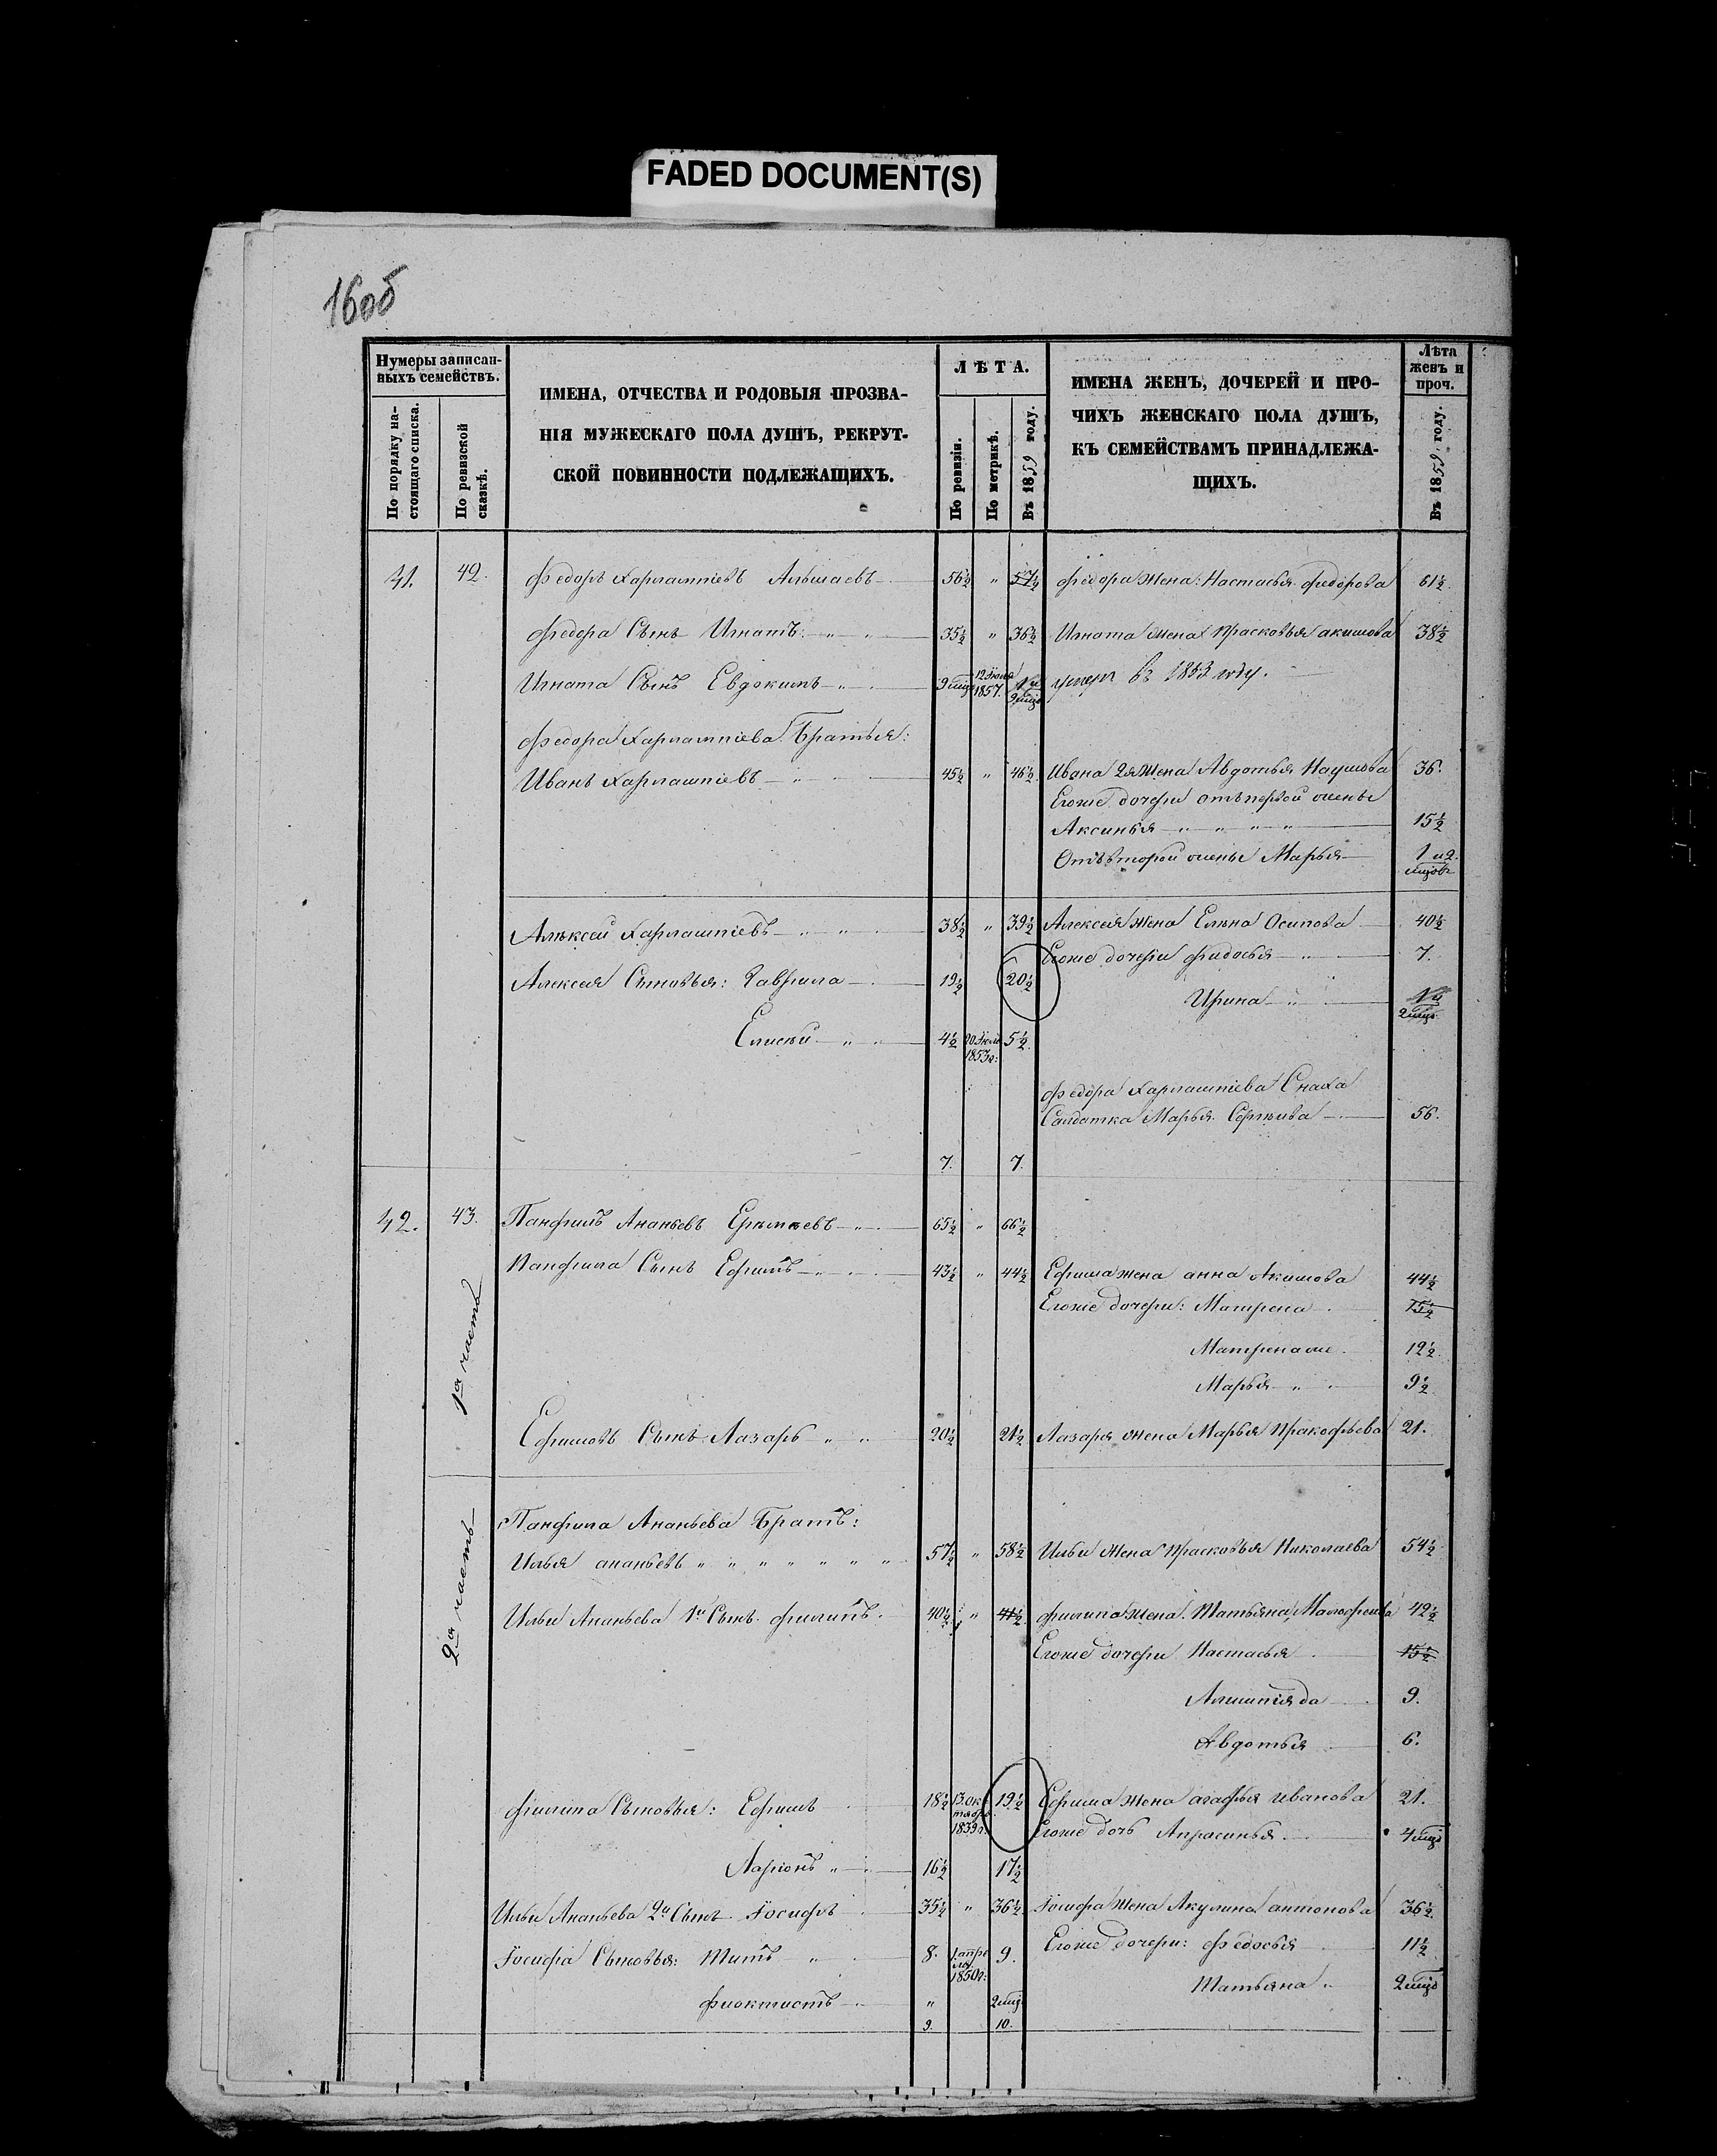 FADED DOCUMENT(S)
16об
Нумеры записан-
ныхъ семействъ.
По порядку на-
стоящаго списка.
По ревизской
сказкѣ.
ИМЕНА, ОТЧЕСТВА И РОДОВЫЯ ПРОЗВА-
НІЯ МУЖЕСКАГО ПОЛА ДУШЪ, РЕКРУТ-
СКОЙ ПОВИННОСТИ ПОДЛЕЖАЩИХЪ.
ЛѢТА.
По ревизіи.
По метрикѣ.
Въ 1859 году.
ИМЕНА ЖЕНЪ, ДОЧЕРЕЙ И ПРО-
ЧИХЪ ЖЕНСКАГО ПОЛА ДУШЪ,
КЪ СЕМЕЙСТВАМЪ ПРИНАДЛЕЖА-
ЩИХЪ.
Лѣта
женъ и
проч.
Въ 1859 году.
41. 42. Федоръ Харлампіевъ 56½ " 57½ Федора жена: Настасья Федорова 61½
Федора Сынъ Игнатъ 35½ " 36½ Игната жена Прасковья Акимова 38½
Игната Сынъ Евдокимъ 9 мцъ 12 Іюня 1857. 1 и 9 мцъ умеръ въ
Федора Харлампіева Братья:
Иванъ Харлампіевъ 45½ " 46½ Ивана 2я жена Авдотья Наумова 36.
Егоже дочери отъ первой жены
Аксинья 15½
Отъ второй жены Марья 1 и 2. мцовъ
Алексѣй Харлампіевъ 38½ " 39½ Алексея жена Елена Осипова 40½
Егоже дочери Фидосья 7.
Алексея Сыновья: Гаврила 19½ 20½
Ирина 1 и 2 мцъ
Елисѣй 4½ 20 1853 г: 5½
Федора Харлампіева Сноха
Салдатка Марья Сергѣива 56.
7. 7.
42. 43. Панфилъ Ананьевъ Еремѣевъ 65½ " 66½
1я часть
Панфила Сынъ Ефимъ 43½ " 44½ Ефима жена анна Акимова 44½
Егоже дочери: Матрена 15½
Матрена же 12½
Марья 9½
Ефимовъ Сынъ Лазарь 20½ 21½ Лазаря жена Марья Пракофьева 21.
2я часть
Панфила Ананьева Братъ:
Илья ананьевъ 57½ " 58½ Ильи жена Прасковья Николаева 54½
Ильи Ананьева 1й Сынъ Филипъ 40½ " 41½ Филипа жена Татьяна 42½
Егоже дочери Настасья 15½
Алимпіяда 9.
Авдотья 6.
Филипа Сыновья: Ефимъ 18½ октября 1839 г: 19½ Ефима жена агафья иванова 21.
Егоже дочь Апросинья 4 мцъ
Ларіонъ 16½ 17½
Ильи Ананьева 2й Сынъ Іосифъ 35½ " 36½ Іосифа жена Акулина антонова 36½
Іосифа Сыновья: Титъ 8. 1 апреля 1850 г: 9. Егоже дочери: Федосья 11½
Татьяна 2 мцъ
Фиоктистъ " 2 мцъ
9. 10.